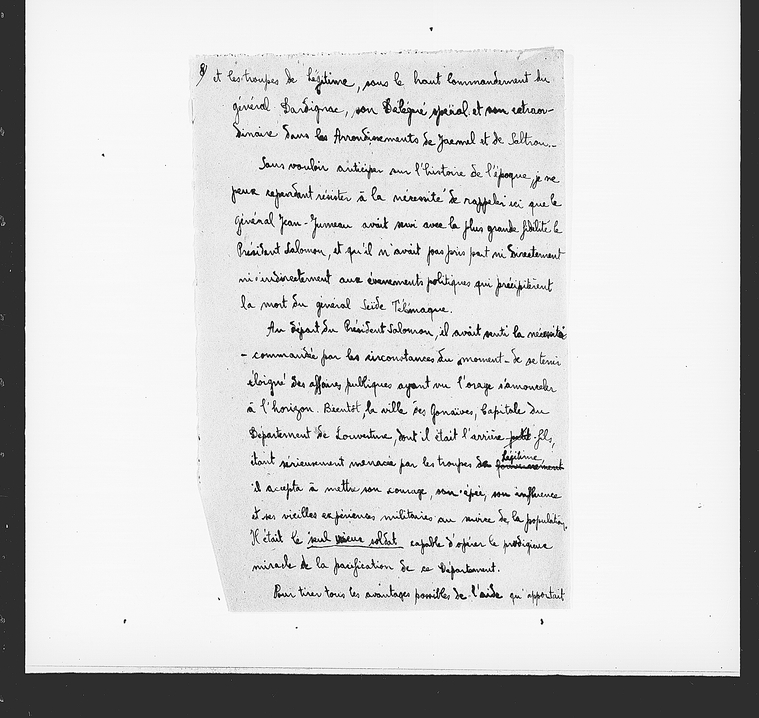 8) et les troupes de Légitime, sous le haut commandement du
général Dardignac, son Délégué spécial et son extraor-
dinaire dans les Arrondissements de Jacmel et de Saltrou...
Sans vouloir anticiper sur l'histoire de l'époque, je ne
peux cependant résister à la nécessité de rappeler ici que le
général Jean-Jumeau avait servi avec la plus grande fidélité le
Président Salomon, et qu'il n'avait pas pris part ni directement
ni indirectement aux évènements politiques qui précipitèrent
la mort du général Seïde Télémaque.
Au départ du Président Salomon, il avait senti la nécessité
- commandée par les circonstances du moment - de se tenir
éloigné des affaires publiques ayant vu l'orage s'amonceler
à l'horizon. Bientôt, la ville des Gonaïves, Capitale du
Département de Louverture, dont il était l'arrière-petit-fils,
étant sérieusement menacée par les troupes de gouvernement Légitime,
il accepta à mettre son courage, son épée, son influence
et ses vieilles expériences militaires au service de la population.
Il était le seul vieux soldat capable d'opérer le prodigieux
miracle de la pacification de ce Département.
Pour tirer tous les avantages possibles de l'aide qu'apportait